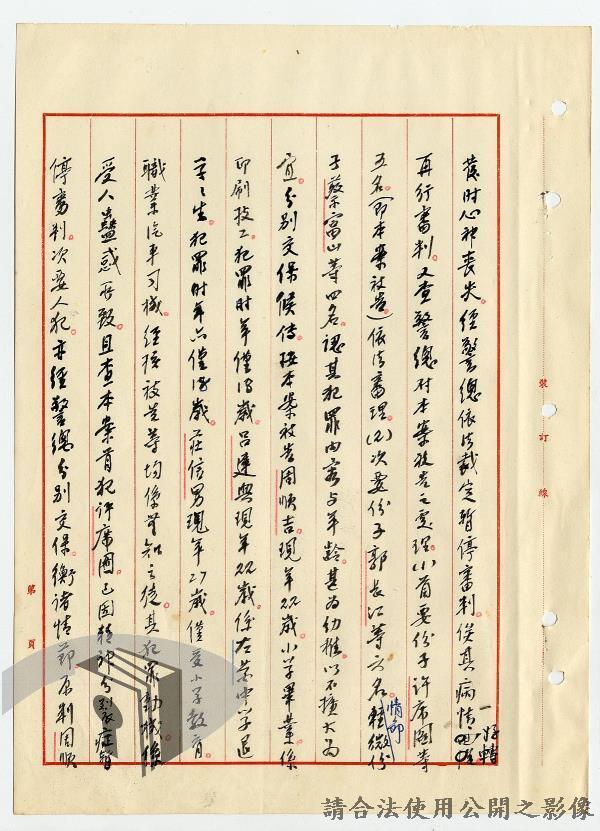 發時心神喪失。經警總依法裁定暫停審判俟其病情好轉
再行審判。又查警總對本案被告之處理(1)首要份子許席圖等
五名(即本案被告)依法審理。(2)次要份子郭長江等六名,情節輕微份
子蔡富山等四名。認其犯罪內容與年齡。甚為幼稚以不擴大為
宜。分別交保候傳。按本案被告周順吉現年22歲。小學畢業係
印刷技工。犯罪時年僅18歲。呂建興現年22歲。係在台中學退
學之生。犯罪時年亦僅18歲。莊信男現年27歲。僅受小學教育
職業汽車司機。經核被告等均係無知之徒。其犯罪動機係
受人蠱惑所致。且查本案首犯許席圖。已因精神分裂症暫
停審判。次要人犯。亦經警總分別交保。衡諸情節原判周順
裝訂線
第 頁
請合法使用公開之影像